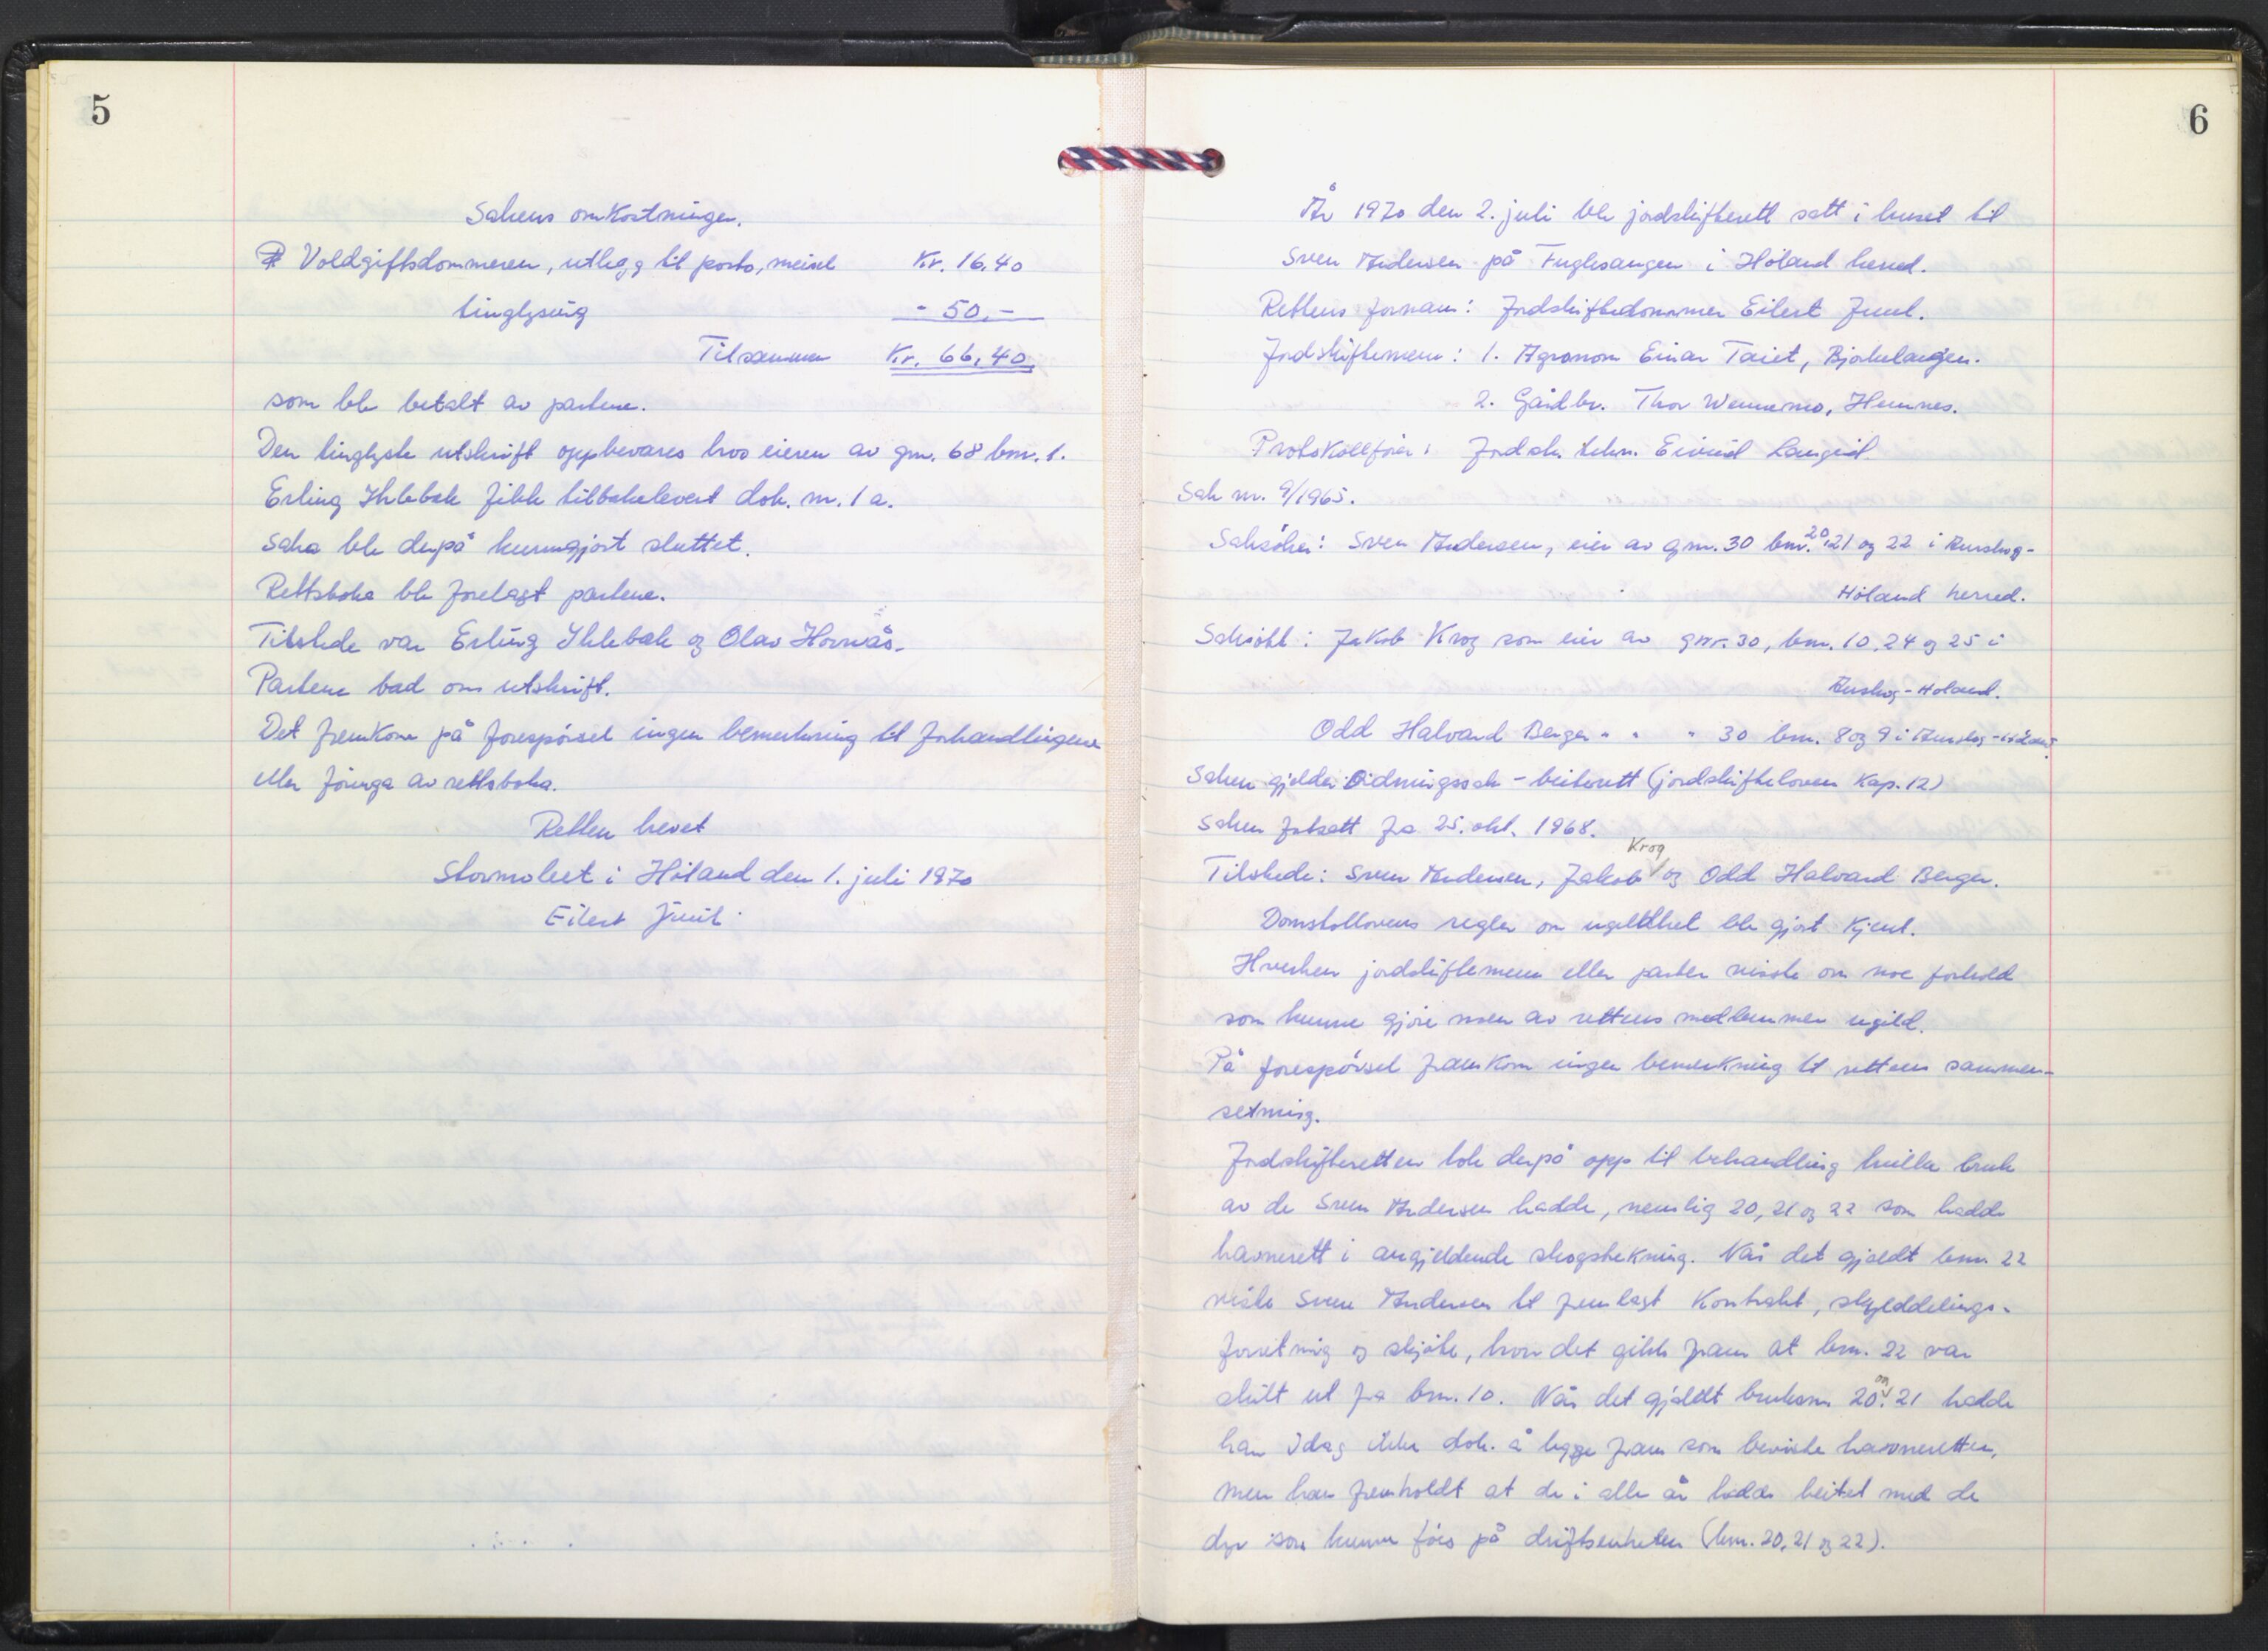 5
Sakens omkostninger.
Voldgiftsdommeren, utlegg til porto, meisel Kr. 16,40
tinglysing - 50,-
Tilsammen Kr. 66,40
som ble betalt av partene.
Den tinglyste utskrift oppbevares hos eieren av gnr. 68 bnr. 1.
Erling Ihlebæk fikk tilbakelevert dok. nr. 1 a.
Saka ble derpå kunngjort sluttet.
Rettsboka ble forelagt partene.
Tilstede var Erling Ihlebæk og Olav Hovnäs.
Partene bad om utskrift.
Det fremkom på forespörsel ingen bemerkning til forhandlingene
eller föringa av rettsboka.
Retten hevet
i Höland den 1. juli 1970
Eilert Juul
6
År 1970 den 2. juli ble jordskifterett satt i huset til
Sven Andersen på Fuglesangen i Höland herred.
Rettens formann: Jordskiftedommer Eilert Juul.
Jordskiftemenn: 1. Agronom Einar Taiet, Bjørkelangen.
2. Gårdbr. Thor Wennemo, Hemnes.
Protokollförer: Jordsk. tekn. Eivind Langeid.
Sak nr. 9/1965.
Saksöker: Sven Andersen, eier av gnr. 30 bnr. 20, 21 og 22 i Aurskog-
Höland herred.
Saksökt: Jakob Krog som eier av gnr. 30, bnr. 10, 24 og 25 i
Aurskog-Höland.
Odd Halvard Berger " " " 30 bnr. 8 og 9 i Aurskog-Höland.
Saken gjelder: Ordningssak - beiterett (jordskifteloven Kap. 12)
Saken fortsatt fra 25. okt. 1968.
Tilstede: Sven Andersen, Jakob Krog og Odd Halvard Berger.
Domstollovens regler om ugildhet ble gjort kjent.
Hverken jordskiftemenn eller parter visste om noe forhold
som kunne gjöre noen av rettens medlemmer ugild.
På forespörsel framkom ingen bemerkning til rettens sammen-
setning.
Jordskifteretten tok derpå opp til behandling hvilke bruk
av de Sven Andersen hadde, nemlig 20, 21 og 22 som hadde
havnerett i angjeldende skogstrekning. Når det gjaldt bnr. 22
viste Sven Andersen til fremlagt Kontrakt, skylddelings-
forretning og skjöte, hvor det gikk fram at bnr. 22 var
skilt ut fra bnr. 10. Når det gjaldt bruksnr. 20 og 21 hadde
han idag ikke dok. å legge fram som beviste havneretten,
men han fremholdt at de i alle år hadde beitet med de
dyr som kunne föes på driftsenheten (bnr. 20, 21 og 22).